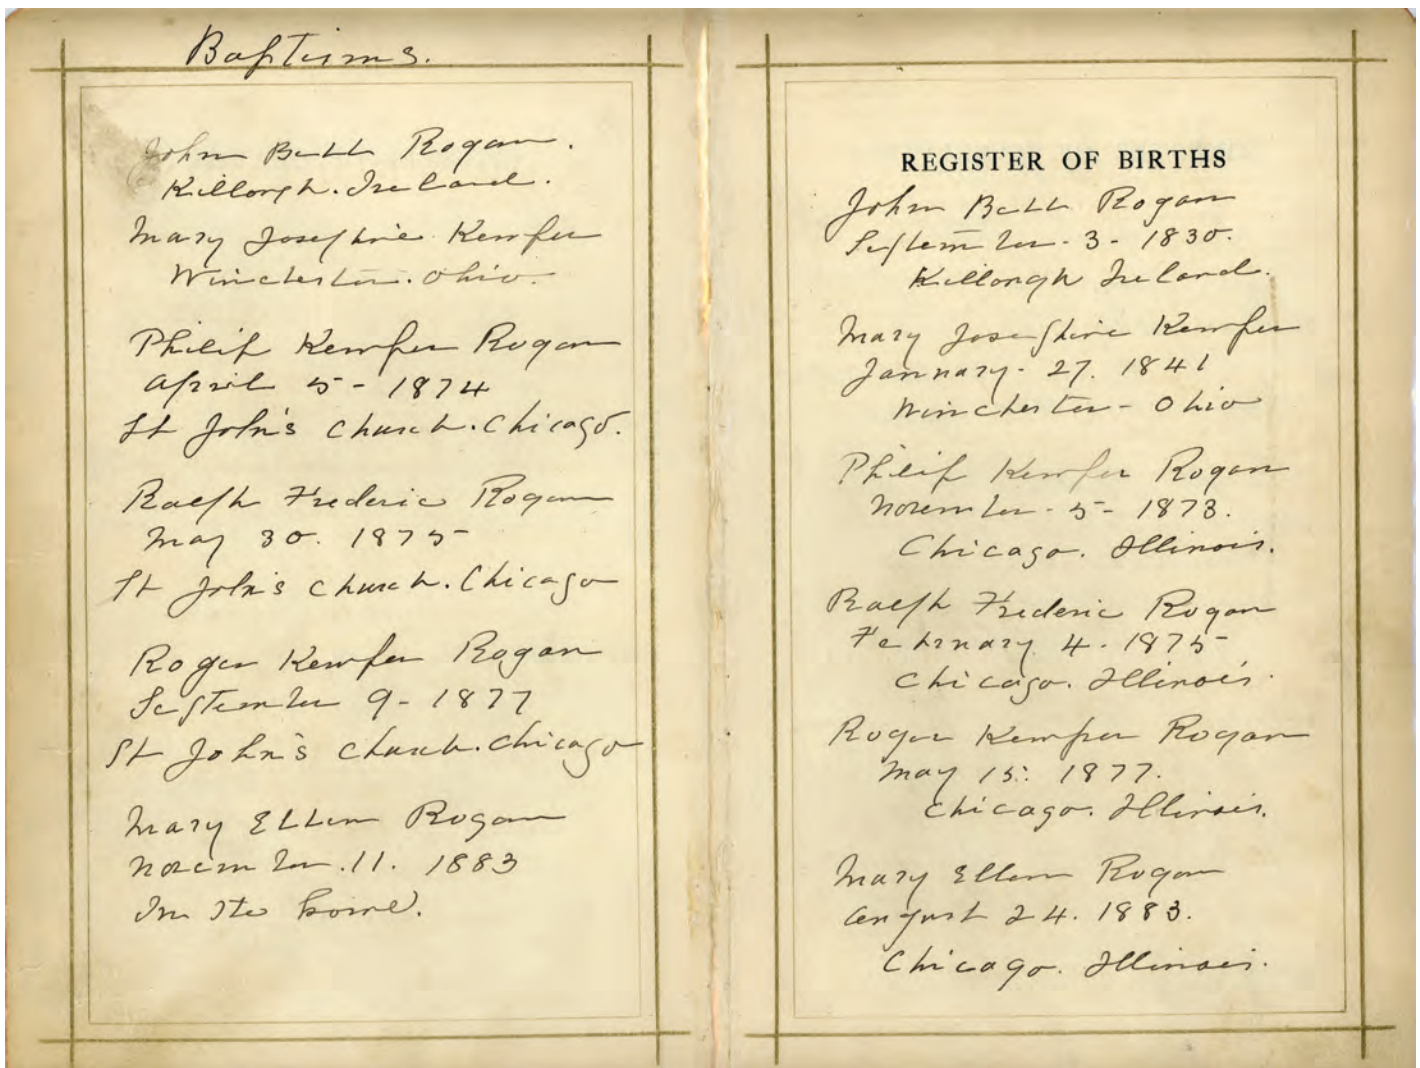 Baptisms.
John Bell Rogan.
Killough. Ireland.
Mary Josephine Kemfer
Winchester. Ohio.
Philip Kemfer Rogan
April 5 - 1874
St John's Church. Chicago.
Ralph Frederic Rogan
May 30. 1875
St John's Church. Chicago
Roger Kemfer Rogan
September 9 - 1877
St John's Church. Chicago
Mary Ellen Rogan
November. 11. 1883
In the home.
REGISTER OF BIRTHS
John Bell Rogan
September - 3 - 1830.
Killough Ireland.
Mary Josephine Kemfer
January - 27. 1841
Winchester - Ohio
Philip Kemfer Rogan
November - 5 - 1873.
Chicago. Illinois.
Ralph Frederic Rogan
February 4. 1875
Chicago. Illinois.
Roger Kemfer Rogan
May 15. 1877.
Chicago. Illinois.
Mary Ellen Rogan
August 24. 1883.
Chicago. Illinois.